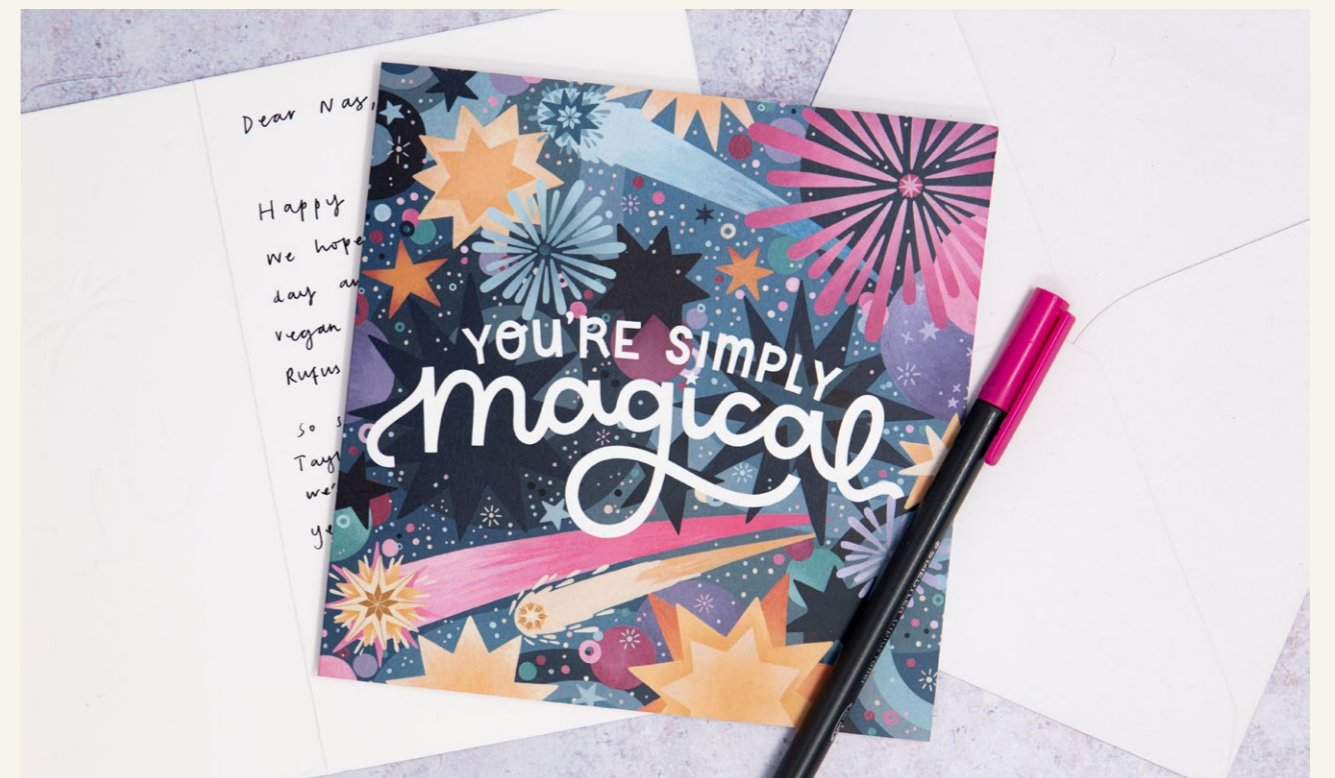 Dear Nas,
Happy
we hope
day
vegan
Rufus
so
we'
YOU'RE SIMPLY
magical